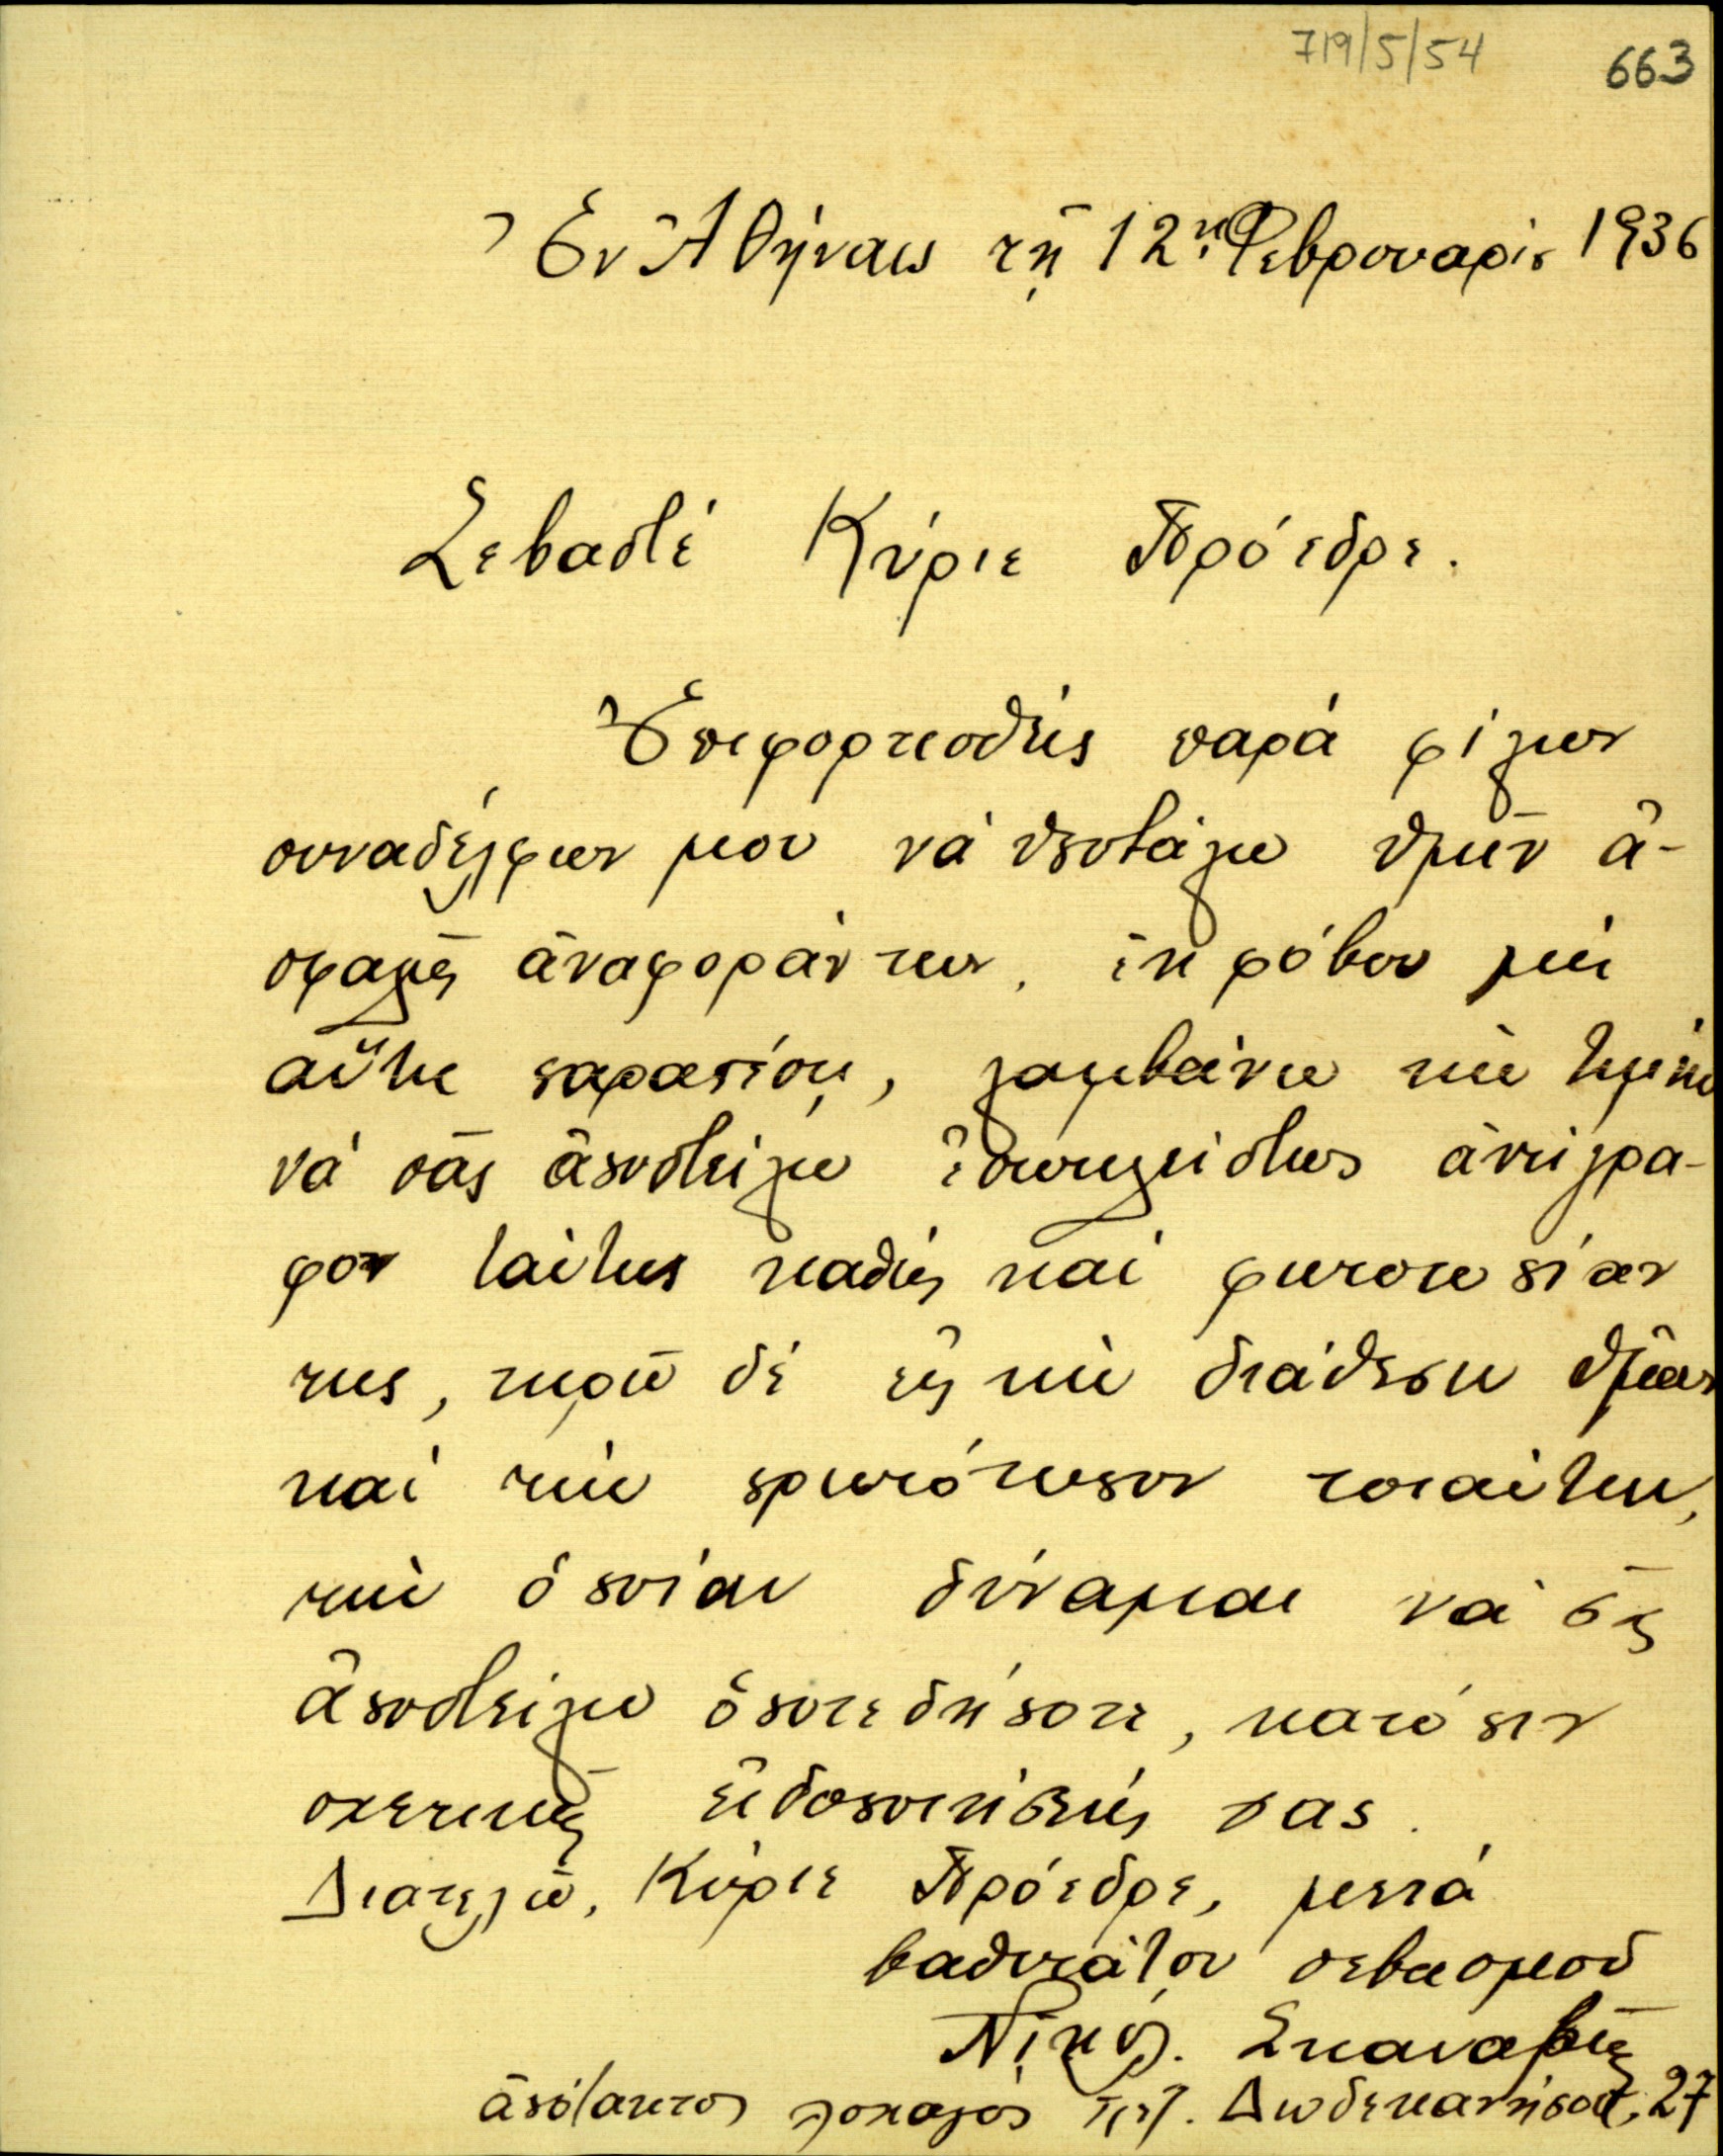 719/5/54 663
Ἐν Ἀθήναις τῇ 12ῃ Φεβρουαρίου 1936
Σεβαστέ Κύριε Πρόεδρε.
Ἐπιφορτισθείς παρά φίλων
συναδέλφων μου νά ὑποβάλω ὑμῖν ἀ-
σφαλῶς ἀναφοράν των, ἐκ φόβου μή
αὕτη παραπέσῃ, λαμβάνω τήν τιμήν
νά σᾶς ἀποστείλω ἐσωκλείστως ἀντίγρα-
φον ταύτης καθώς καί φωτοτυπίαν
της, τηρῶ δέ εἰς τήν διάθεσιν ὑμῶν
καί τήν πρωτότυπον τοιαύτην,
τήν ὁποίαν δύναμαι νά σᾶς
ἀποστείλω ὁποτεδήποτε, κατόπιν
σχετικῆς εἰδοποιήσεώς σας.
Διατελῶ, Κύριε Πρόεδρε, μετά
βαθυτάτου σεβασμοῦ
Νικόλ. Σκαναβῆς
ἀπότακτος λοχαγός Δωδεκανήσου, 27